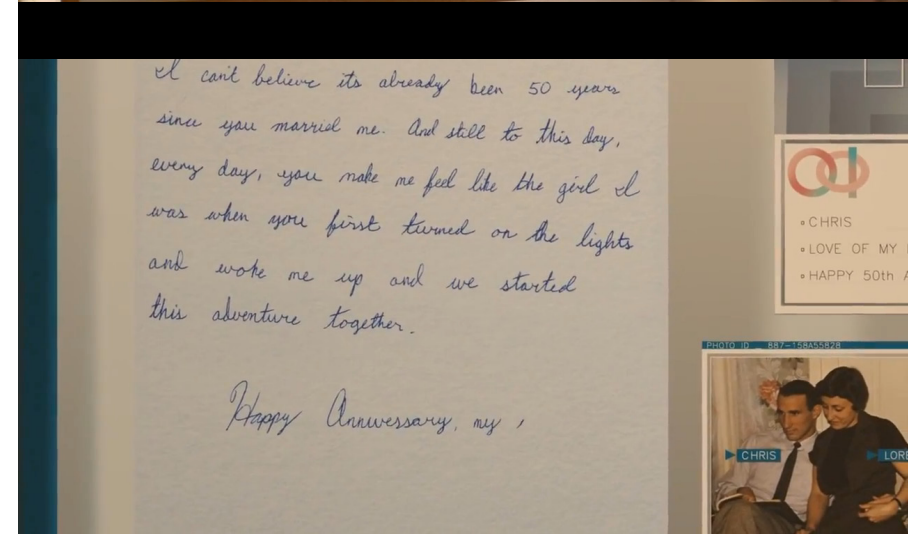 I can't believe its already been 50 years
since you married me. And still to this day,
every day, you make me feel like the girl I
was when you first turned on the lights
and woke me up and we started
this adventure together.
Happy Anniversary, my
CHRIS
LOVE OF MY
HAPPY 50th A
PHOTO ID _ 887-158A55828
CHRIS
LORE